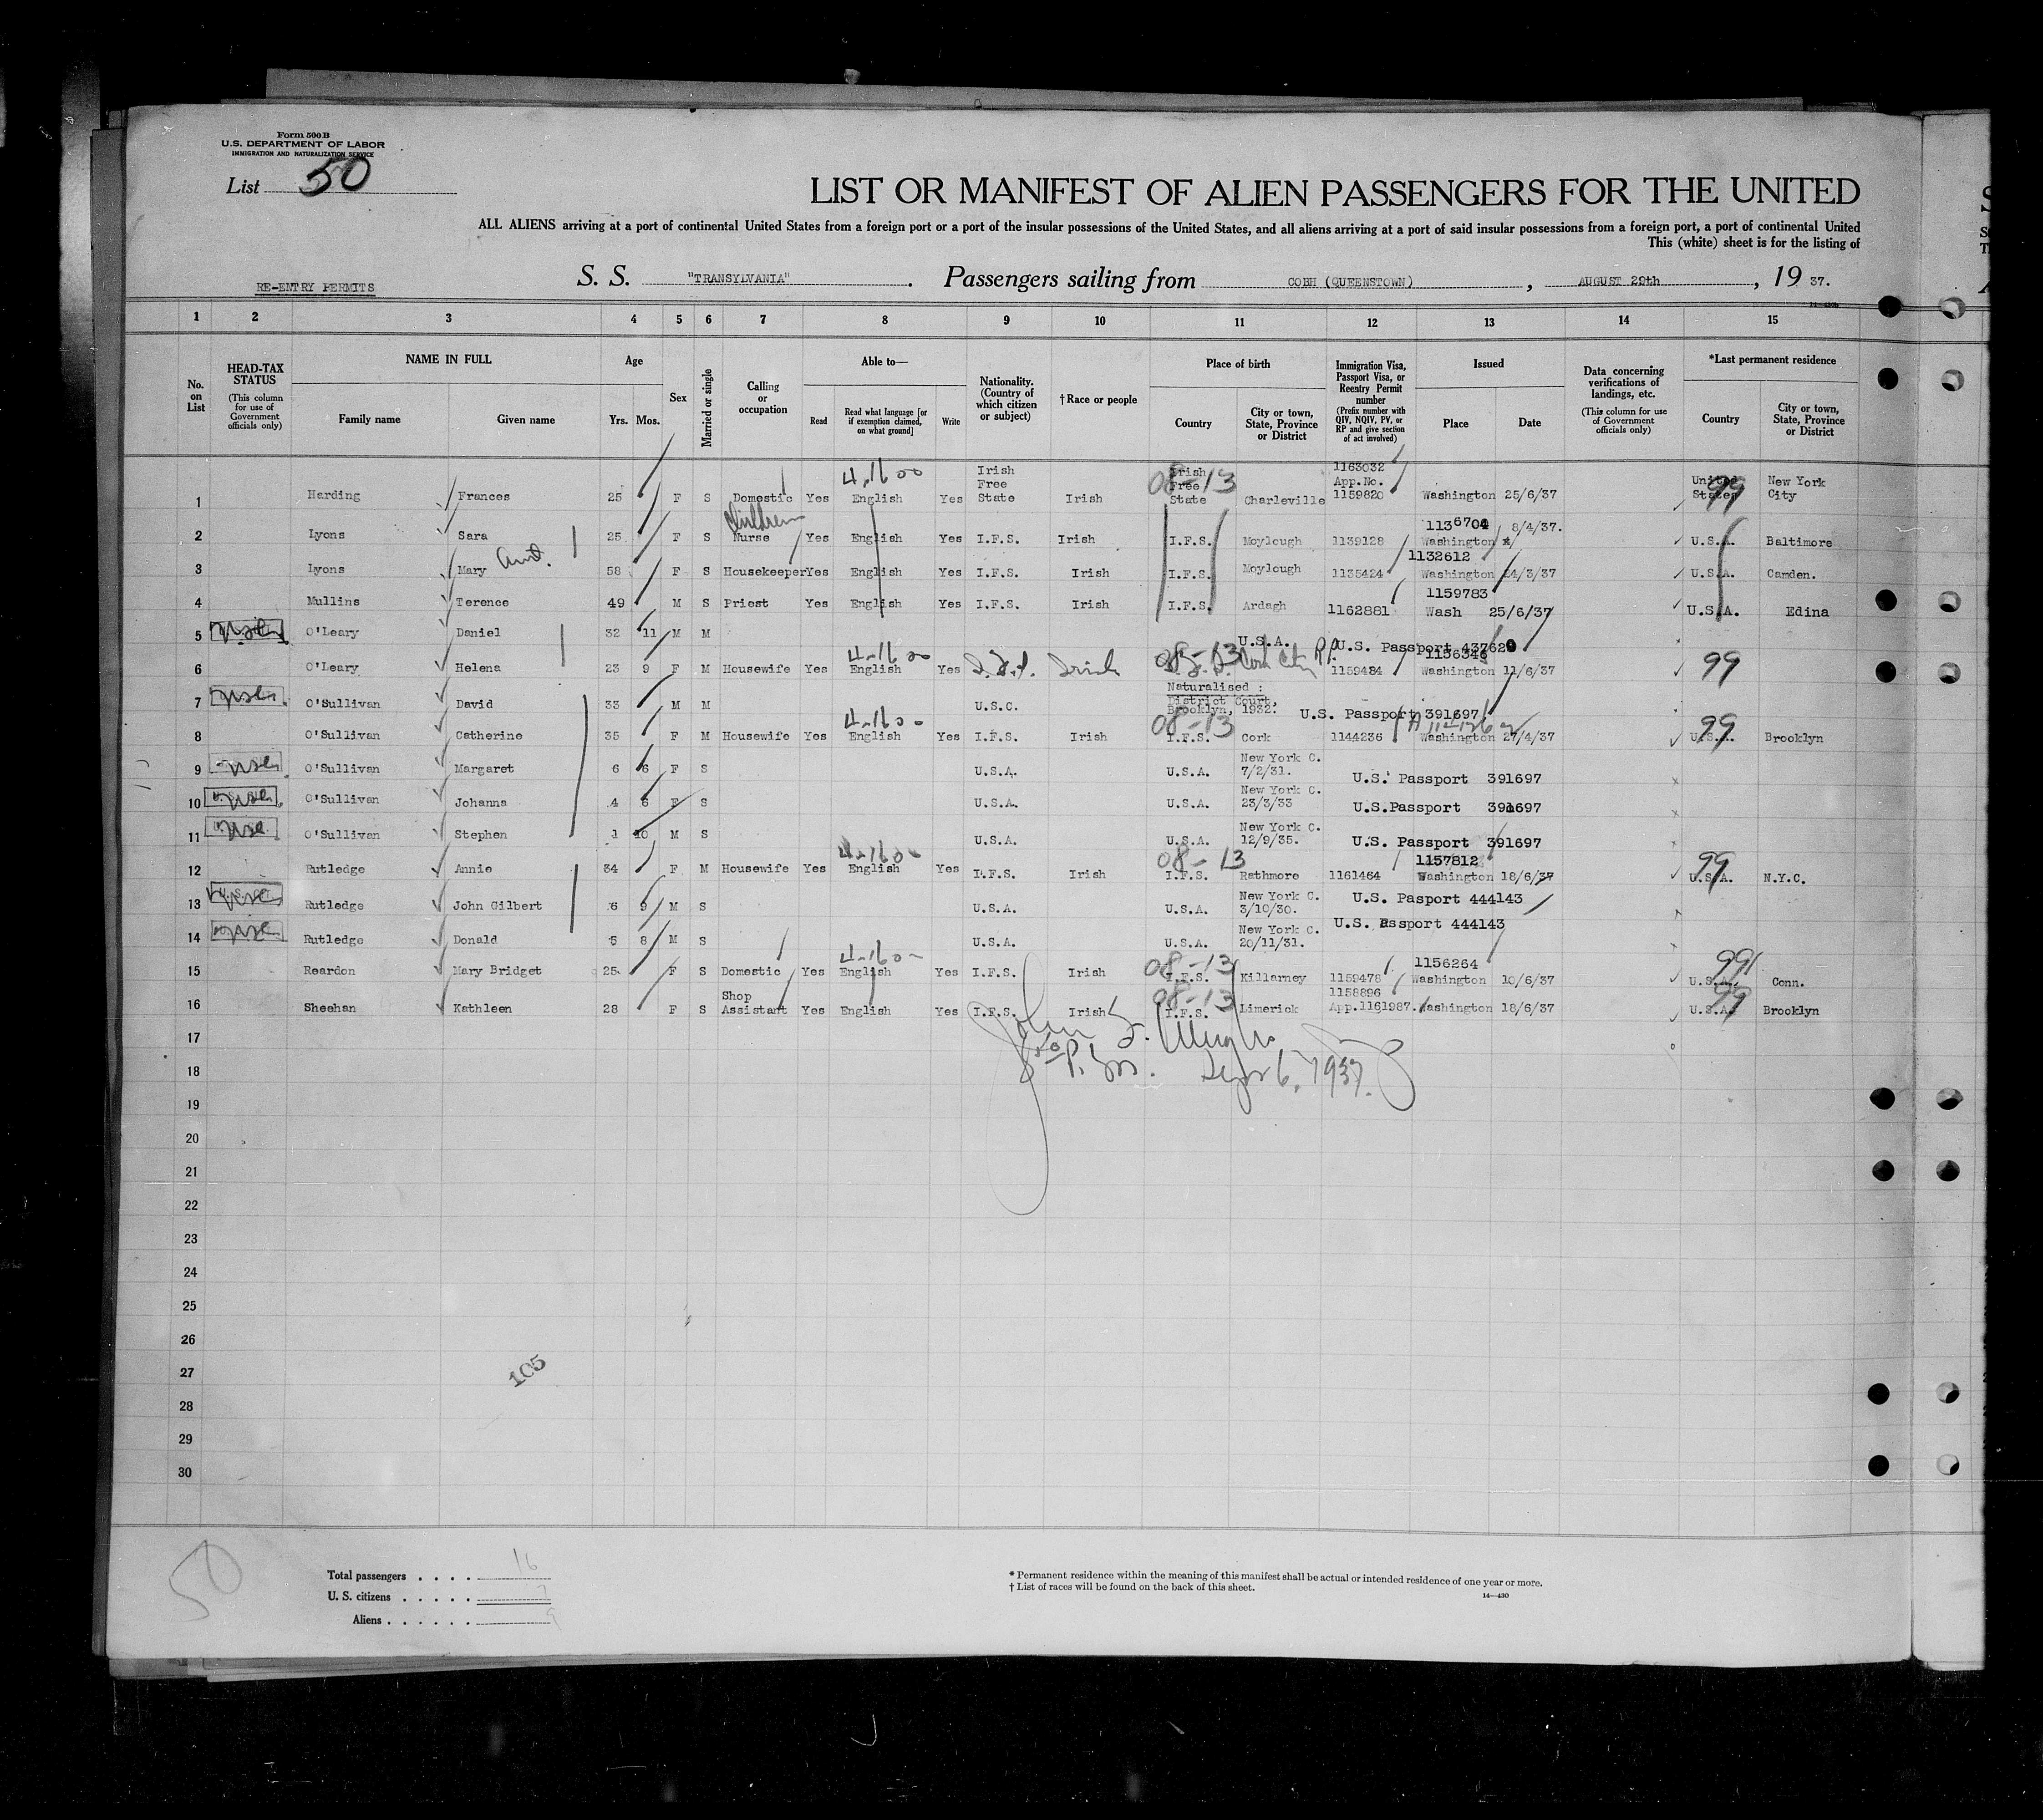 Form 500 B
U.S. DEPARTMENT OF LABOR
IMMIGRATION AND NATURALIZATION SERVICE
List 50
LIST OR MANIFEST OF ALIEN PASSENGERS FOR THE UNITED
ALL ALIENS arriving at a port of continental United States from a foreign port or a port of the insular possessions of the United States, and all aliens arriving at a port of said insular possessions from a foreign port, a port of continental United
This (white) sheet is for the listing of
RE-ENTRY PERMITS S. S. "TRANSYLVANIA". Passengers sailing from COBH (QUEENSTOWN), AUGUST 29th, 19 37.
1 2 3 4 5 6 7 8 9 10 11 12 13 14 15
No. on List
HEAD-TAX STATUS
(This column for use of Government officials only)
NAME IN FULL
Family name Given name
Age
Yrs. Mos.
Sex
Married or single
Calling or occupation
Able to—
Read
Read what language [or if exemption claimed, on what ground]
Write
Nationality. (Country of which citizen or subject)
† Race or people
Place of birth
Country
City or town, State, Province or District
Immigration Visa, Passport Visa, or Reentry Permit number
(Prefix number with QIV, NQIV, PV, or RP and give section of act involved)
Issued
Place Date
Data concerning verifications of landings, etc.
(This column for use of Government officials only)
*Last permanent residence
Country
City or town, State, Province or District
1 Harding Frances 25 F S Domestic Yes English Yes Irish Free State Irish Irish Free State 08-13 Charleville 1163032 App.No. 1159820 Washington 25/6/37 United States 99 New York City
2 Lyons Sara 25 F S Children Nurse Yes English Yes I.F.S. Irish I.F.S. Moylough 1139128 1136704 Washington 8/4/37. U.S.A. Baltimore
3 Lyons Mary Aunt. 58 F S Housekeeper Yes English Yes I.F.S. Irish I.F.S. Moylough 1135424 1132612 Washington 24/3/37 U.S.A. Camden.
4 Mullins Terence 49 M S Priest Yes English Yes I.F.S. Irish I.F.S. Ardagh 1162881 1159783 Wash 25/6/37 U.S.A. Edina
5 O'Leary Daniel 32 11 M M U.S.A. U.S. Passport 437629
6 O'Leary Helena 23 9 F M Housewife Yes English Yes I.F.S. Irish 08-13 I.F.S. Cork City R.P. 1159484 1156346 Washington 11/6/37 99
7 O'Sullivan David 33 M M U.S.C. Naturalised : District Court, Brooklyn, 1932. U.S. Passport 391697
8 O'Sullivan Catherine 35 F M Housewife Yes English Yes I.F.S. Irish 08-13 I.F.S. Cork 1144236 Washington 27/4/37 U.S.A. 99 Brooklyn
9 O'Sullivan Margaret 6 6 F S U.S.A. U.S.A. New York C. 7/2/31. U.S. Passport 391697
10 O'Sullivan Johanna 4 6 F S U.S.A. U.S.A. New York C. 23/3/33 U.S.Passport 391697
11 O'Sullivan Stephen 1 10 M S U.S.A. U.S.A. New York C. 12/9/35. U.S. Passport 391697
12 Rutledge Annie 34 F M Housewife Yes English Yes I.F.S. Irish 08-13 I.F.S. Rathmore 1161464 1157812 Washington 18/6/37 U.S.A. 99 N.Y.C.
13 Rutledge John Gilbert 6 9 M S U.S.A. U.S.A. New York C. 3/10/30. U.S. Pasport 444143
14 Rutledge Donald 5 8 M S U.S.A. U.S.A. New York C. 20/11/31. U.S. Passport 444143
15 Reardon Mary Bridget 25 F S Domestic Yes English Yes I.F.S. Irish 08-13 I.F.S. Killarney 1159478 1156264 Washington 10/6/37 U.S.A. 99 Conn.
16 Sheehan Kathleen 28 F S Shop Assistant Yes English Yes I.F.S. Irish 08-13 I.F.S. Limerick 1158896 App.1161987. Washington 18/6/37 U.S.A. 99 Brooklyn
17
John
18
Sept 6, 1937.
19
20
21
22
23
24
25
26
27
105
28
29
30
50
Total passengers . . . . 16
U. S. citizens . . . . . 7
Aliens . . . . . . 9
* Permanent residence within the meaning of this manifest shall be actual or intended residence of one year or more.
† List of races will be found on the back of this sheet.
14—430